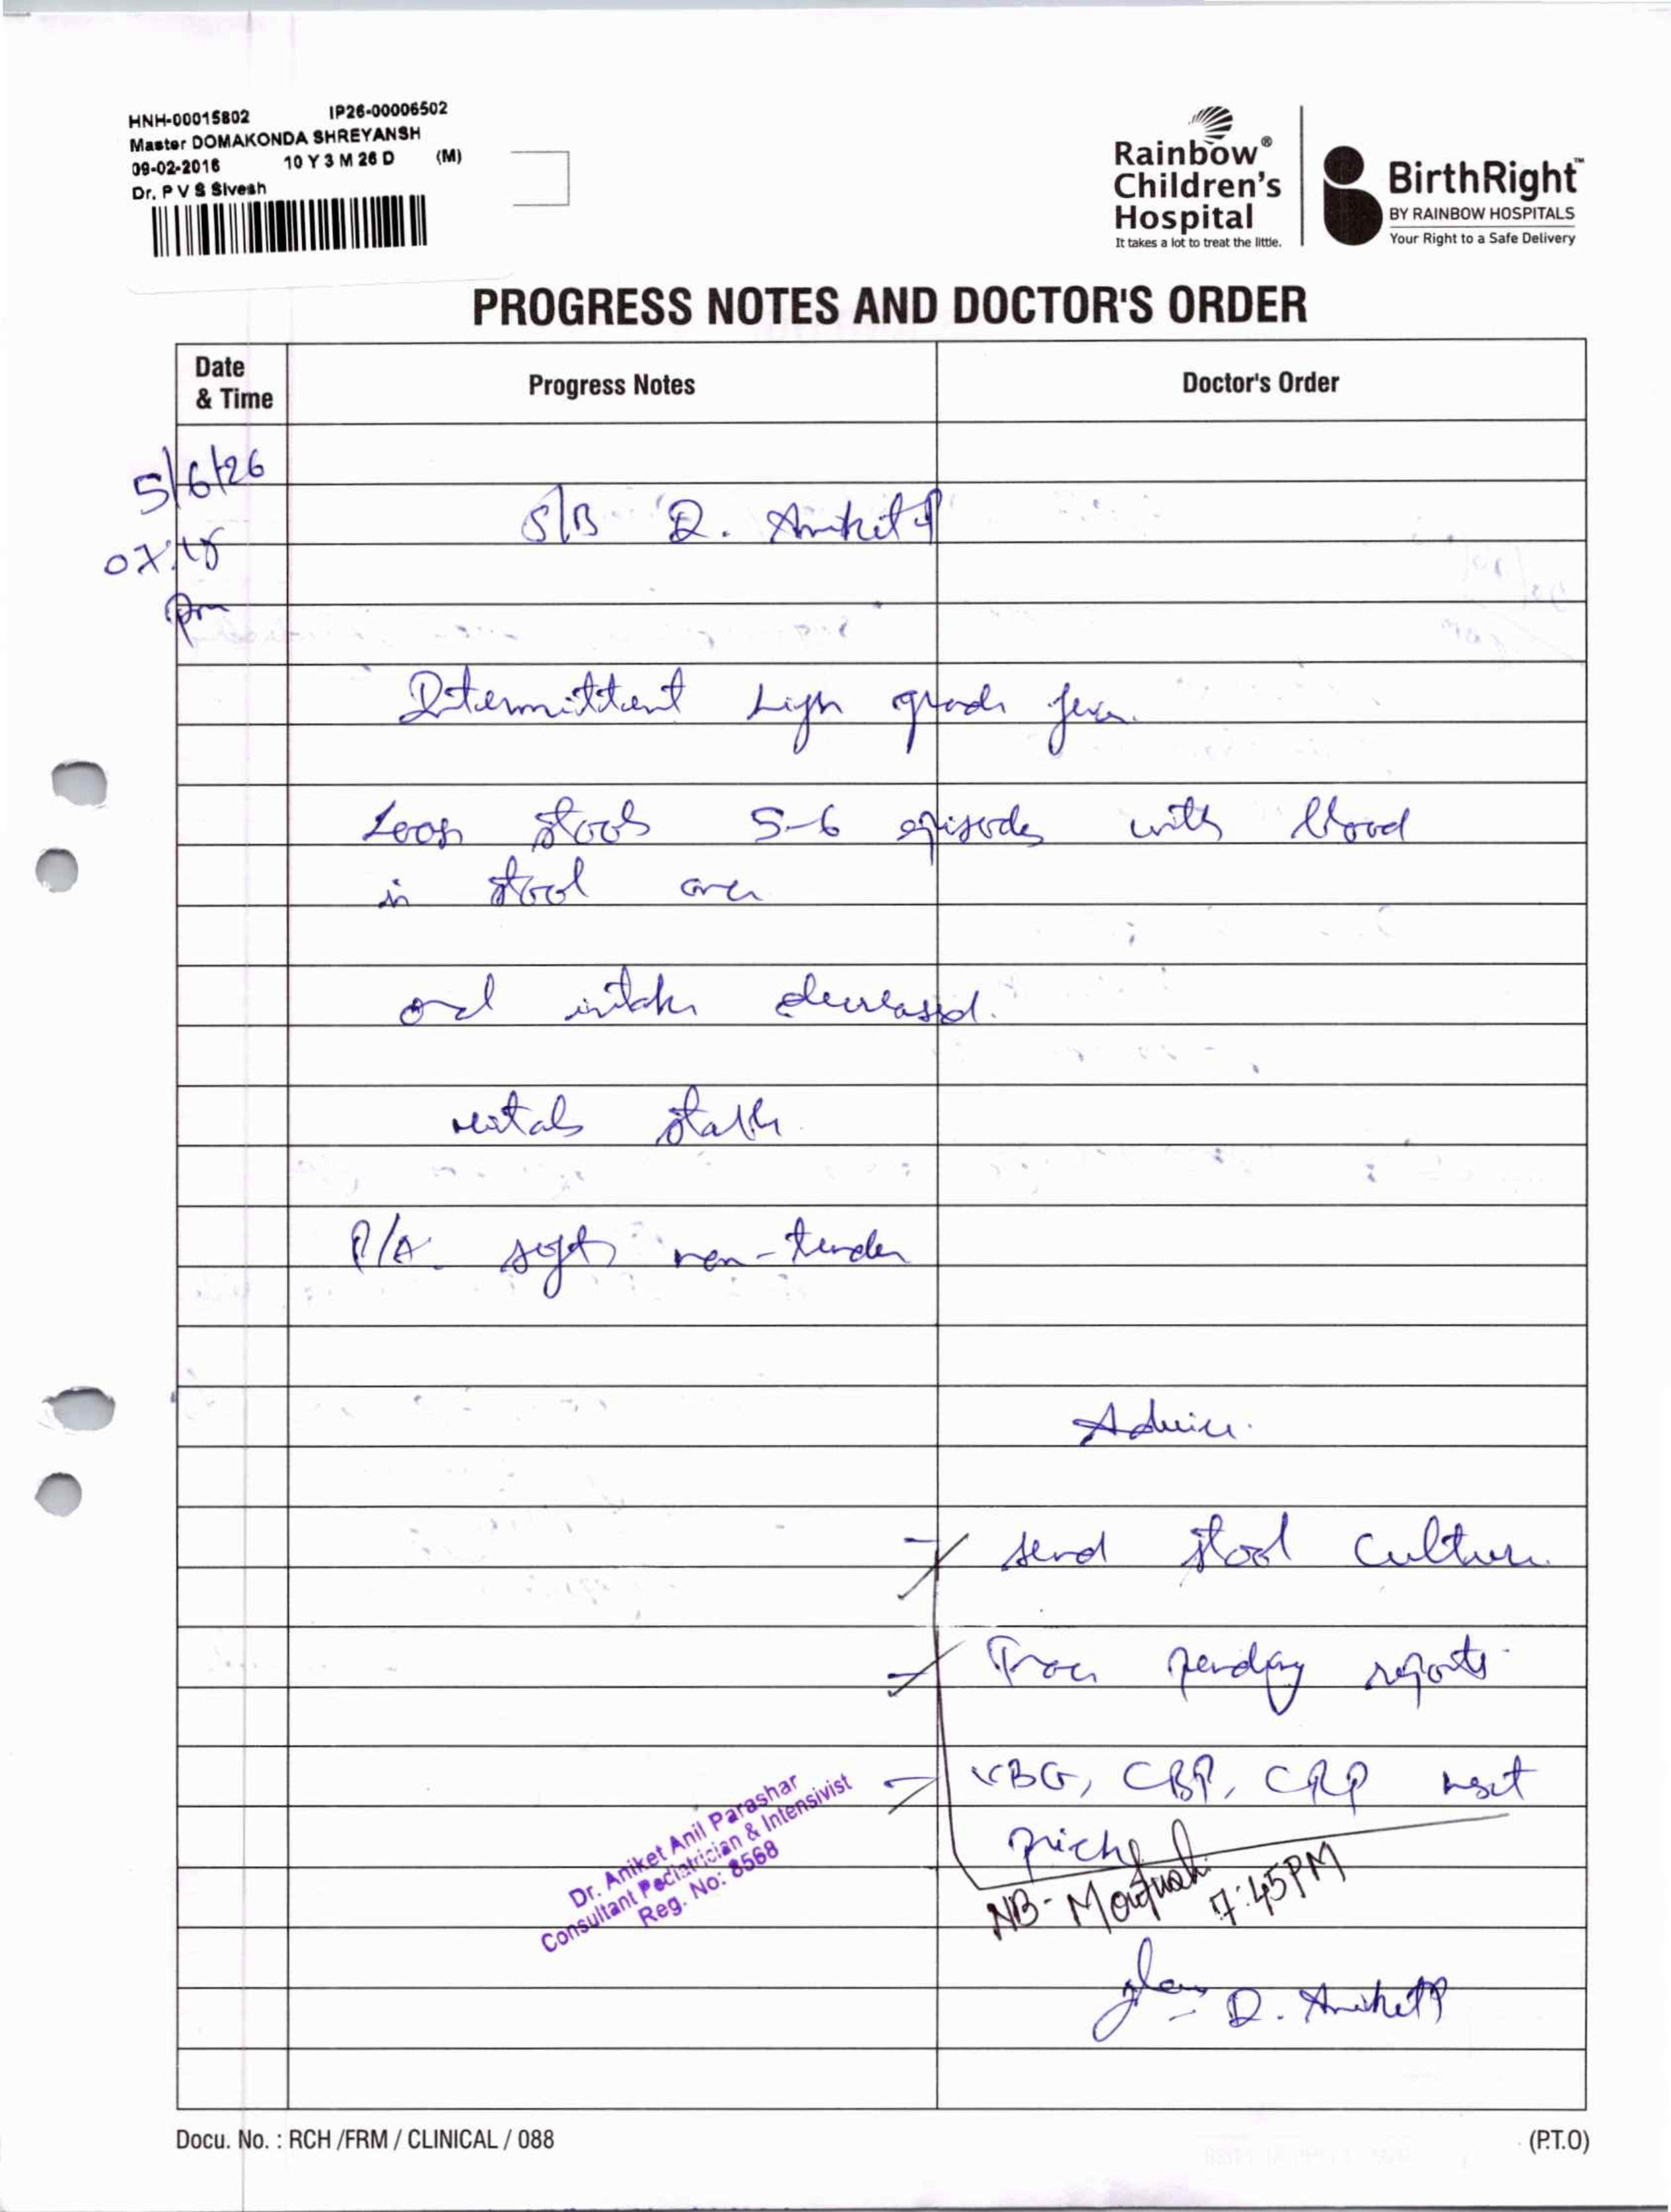 HNH-00015802 IP26-00006502
Master DOMAKONDA SHREYANSH
09-02-2016 10 Y 3 M 26 D (M)
Dr. P V S Sivesh
Rainbow®
Children's
Hospital
It takes a lot to treat the little.
BirthRight™
BY RAINBOW HOSPITALS
Your Right to a Safe Delivery
PROGRESS NOTES AND DOCTOR'S ORDER
Date
& Time
Progress Notes
Doctor's Order
5/6/26
07:15
pm
S/B D. Aniket P
Intermittent high grade fever.
Loose stools 5-6 episodes with blood
in stool over
oral intake decreased.
vitals stable.
P/A. soft non-tender
Advice.
- send stool culture
- Trace pending reports
- VBG, CBP, CRP next
prick
NB- 7:45PM
Dr. Aniket Anil Parashar
Consultant Pediatrician & Intensivist
Reg. No: 8568
D. Aniket P
Docu. No. : RCH /FRM / CLINICAL / 088
(P.T.O)